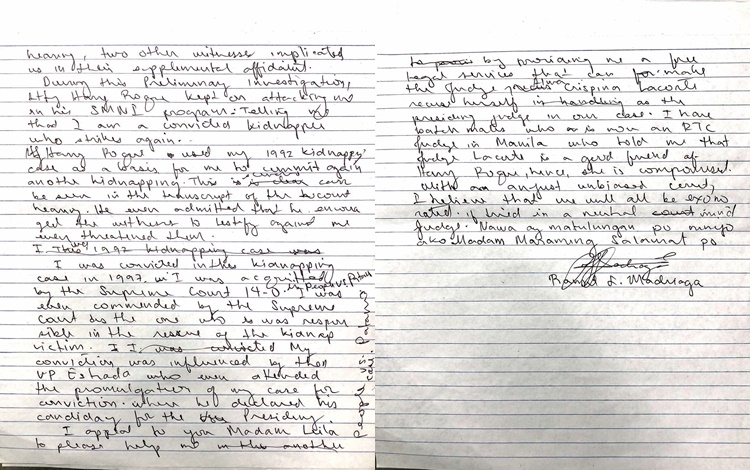 hearing, two other witnesses implicated
us in their supplemental affidavit.
During this Preliminary Investigation,
Atty Harry Roque kept on attacking me
in his SMNI program. Telling
that I am a convicted kidnapper
who strikes again.
Harry Roque used my 1992 kidnapping
case as a basis for me to commit again
another kidnapping. This can
be seen in the transcript of the
hearing. He even admitted that he
the witness to testify against me
even threatened them.
I. This 1992 kidnapping case was
I was convicted in this kidnapping
case in 1997, I was acquitted
by the Supreme Court 14-0. I was
even commended by the Supreme
Court as the one who is was respon
sible in the rescue of the kidnap
victim. I I was convicted My
conviction was influenced by then
VP Estrada who even attended
the promulgation of my case for
conviction. where he declared his
candidacy for the Presidency.
I appeal to you Madam Leila
to please help me in the another
by providing me a free
legal services that can for make
the Judge Crispina Lacorte
recuse himself in handling as the
presiding judge in our case. I have
batch mates who is now an RTC
Judge in Manila who told me that
Judge Lacorte is a good friend of
Harry Roque, hence, she is compromised.
With an unbiased court,
I believe that we will all be exone
rated. if tried in a neutral court
judge. Nawa ay matulungan po ninyo
ako Madam Maraming Salamat po